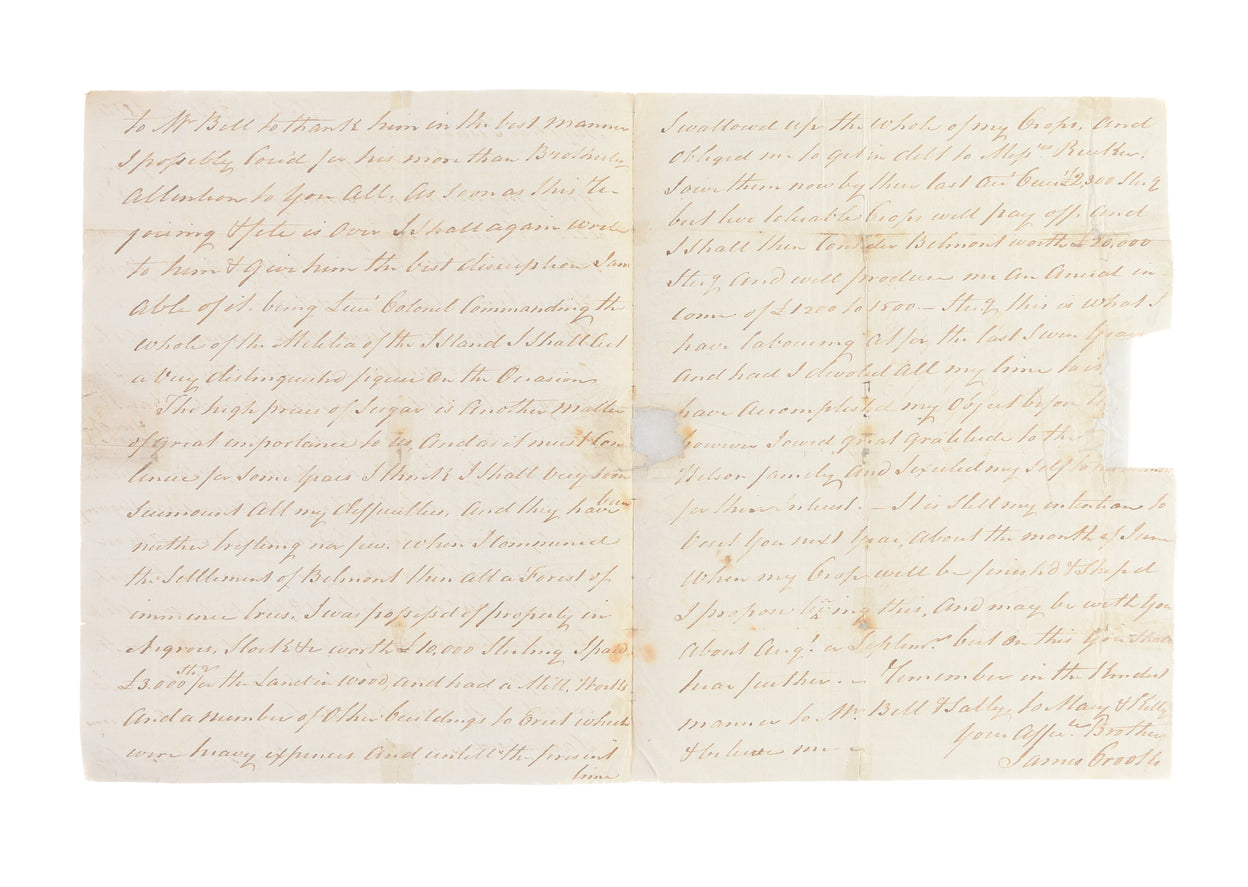 to Mr Bell to thank him in the best manner
I possibly Cou'd for his more than Brotherly
attention to You All, As soon as this re-
joicing & fete is Over I shall again write
to him & Give him the best discription I am
able of it, being Lieut Colonel Commanding the
whole of the Militia of the Island I shall cut
a Very distinguish'd figure On the Occasion
The high prices of Sugar is Another matter
of Great importance to us, And as it must Con
tinue for Some Years I think I shall Very soon
Surmount All my difficulties, And they have been
neither trifling nor few. When I Commenced
the Settlement of Belmont then All a Forest of
immence trees, I was possessed of property in
Negroes, Stock &c worth £10,000 Sterling I paid
£3.000 Sterg for the Land in wood, and had a Mill, Works
And a number of Other buildings to Erect which
were heavy expences And untill the present
time
Swallowed up the whole of my Crops, And
Obliged me to get in debt to Messrs
I owe them now by their last Acct £2,300 Sterg
but two toleable Crops will pay off, And
I shall then Consider Belmont worth £20,000
Sterg And will produce me An Anual in-
come of £1200 to 1500 — Sterg this is what I
have labouring At for the last Seven Years
And had I devoted All my time to it
have Accomplished my Object before
however I owed great gratitude to the
Wilson family And my self to
for their intrest. — It is Still my intention to
Visit You next Year, About the month of June
When my Crop will be finish'd & Ship'd
I propose this, And may be with You
About Augt or Septemr but On this You Shall
hear further. — Remember in the kindest
manner to Mr Bell & Sally, to Mary & Kitty
& believe me —
Your Affece Brother
James Crooks